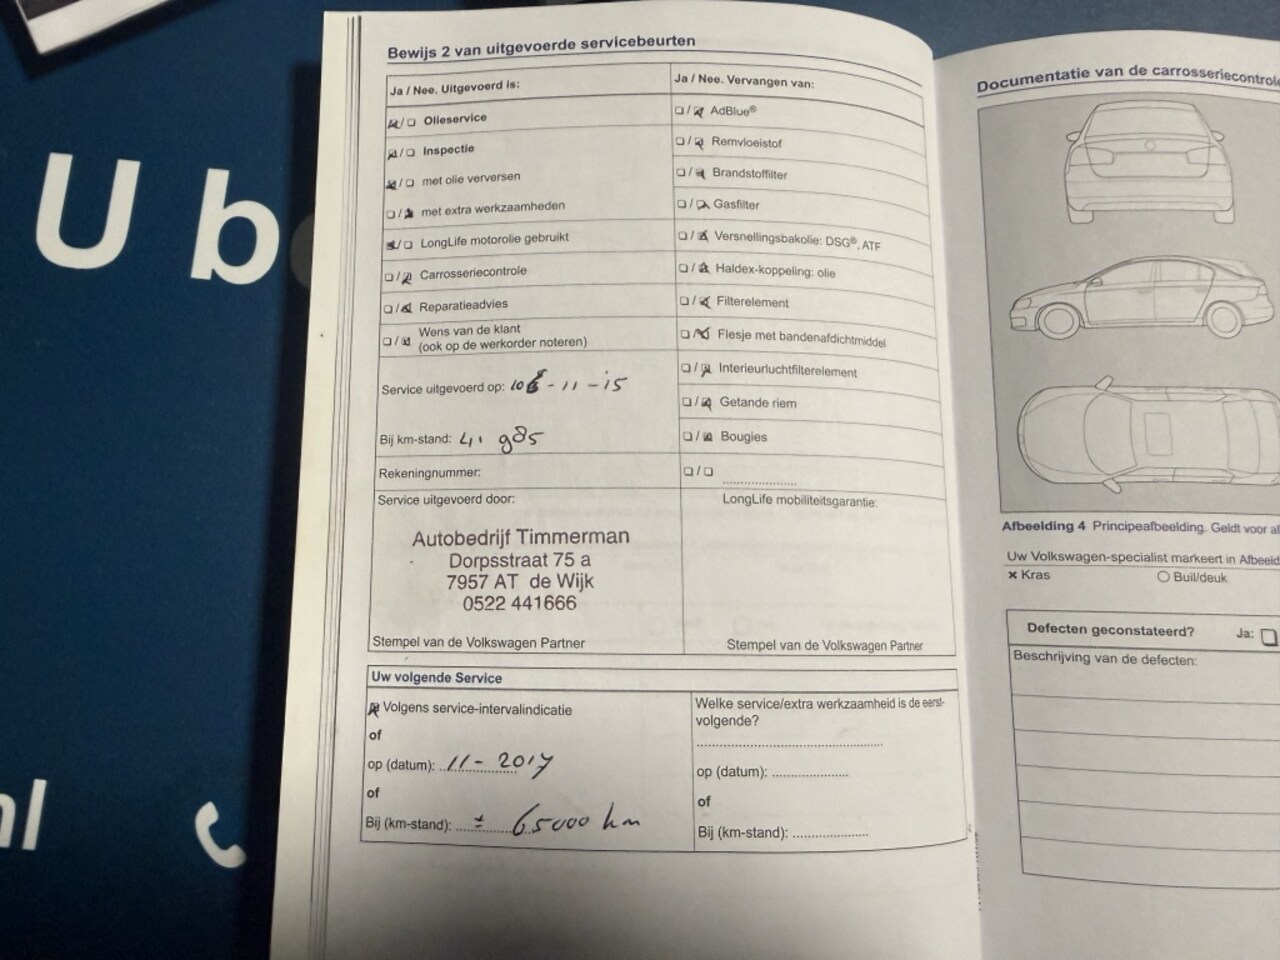 U b
nl
Bewijs 2 van uitgevoerde servicebeurten
Ja / Nee. Uitgevoerd is:
Olieservice
Inspectie
met olie verversen
met extra werkzaamheden
LongLife motorolie gebruikt
Carrosseriecontrole
Reparatieadvies
Wens van de klant
(ook op de werkorder noteren)
Service uitgevoerd op: -11-15
Bij km-stand: 41.985
Rekeningnummer:
Service uitgevoerd door:
Autobedrijf Timmerman
Dorpsstraat 75 a
7957 AT de Wijk
0522 441666
Stempel van de Volkswagen Partner
Ja / Nee. Vervangen van:
AdBlue®
Remvloeistof
Brandstoffilter
Gasfilter
Versnellingsbakolie: DSG®, ATF
Haldex-koppeling: olie
Filterelement
Flesje met bandenafdichtmiddel
Interieurluchtfilterelement
Getande riem
Bougies
LongLife mobiliteitsgarantie:
Stempel van de Volkswagen Partner
Uw volgende Service
Volgens service-intervalindicatie
of
op (datum): 11-2017
of
Bij (km-stand): ± 65000 km
Welke service/extra werkzaamheid is de eerst-
volgende?
op (datum):
of
Bij (km-stand):
Documentatie van de carrosseriecontrole
Afbeelding 4 Principeafbeelding. Geldt voor al
Uw Volkswagen-specialist markeert in Afbeeld
× Kras
Buil/deuk
Defecten geconstateerd? Ja:
Beschrijving van de defecten: